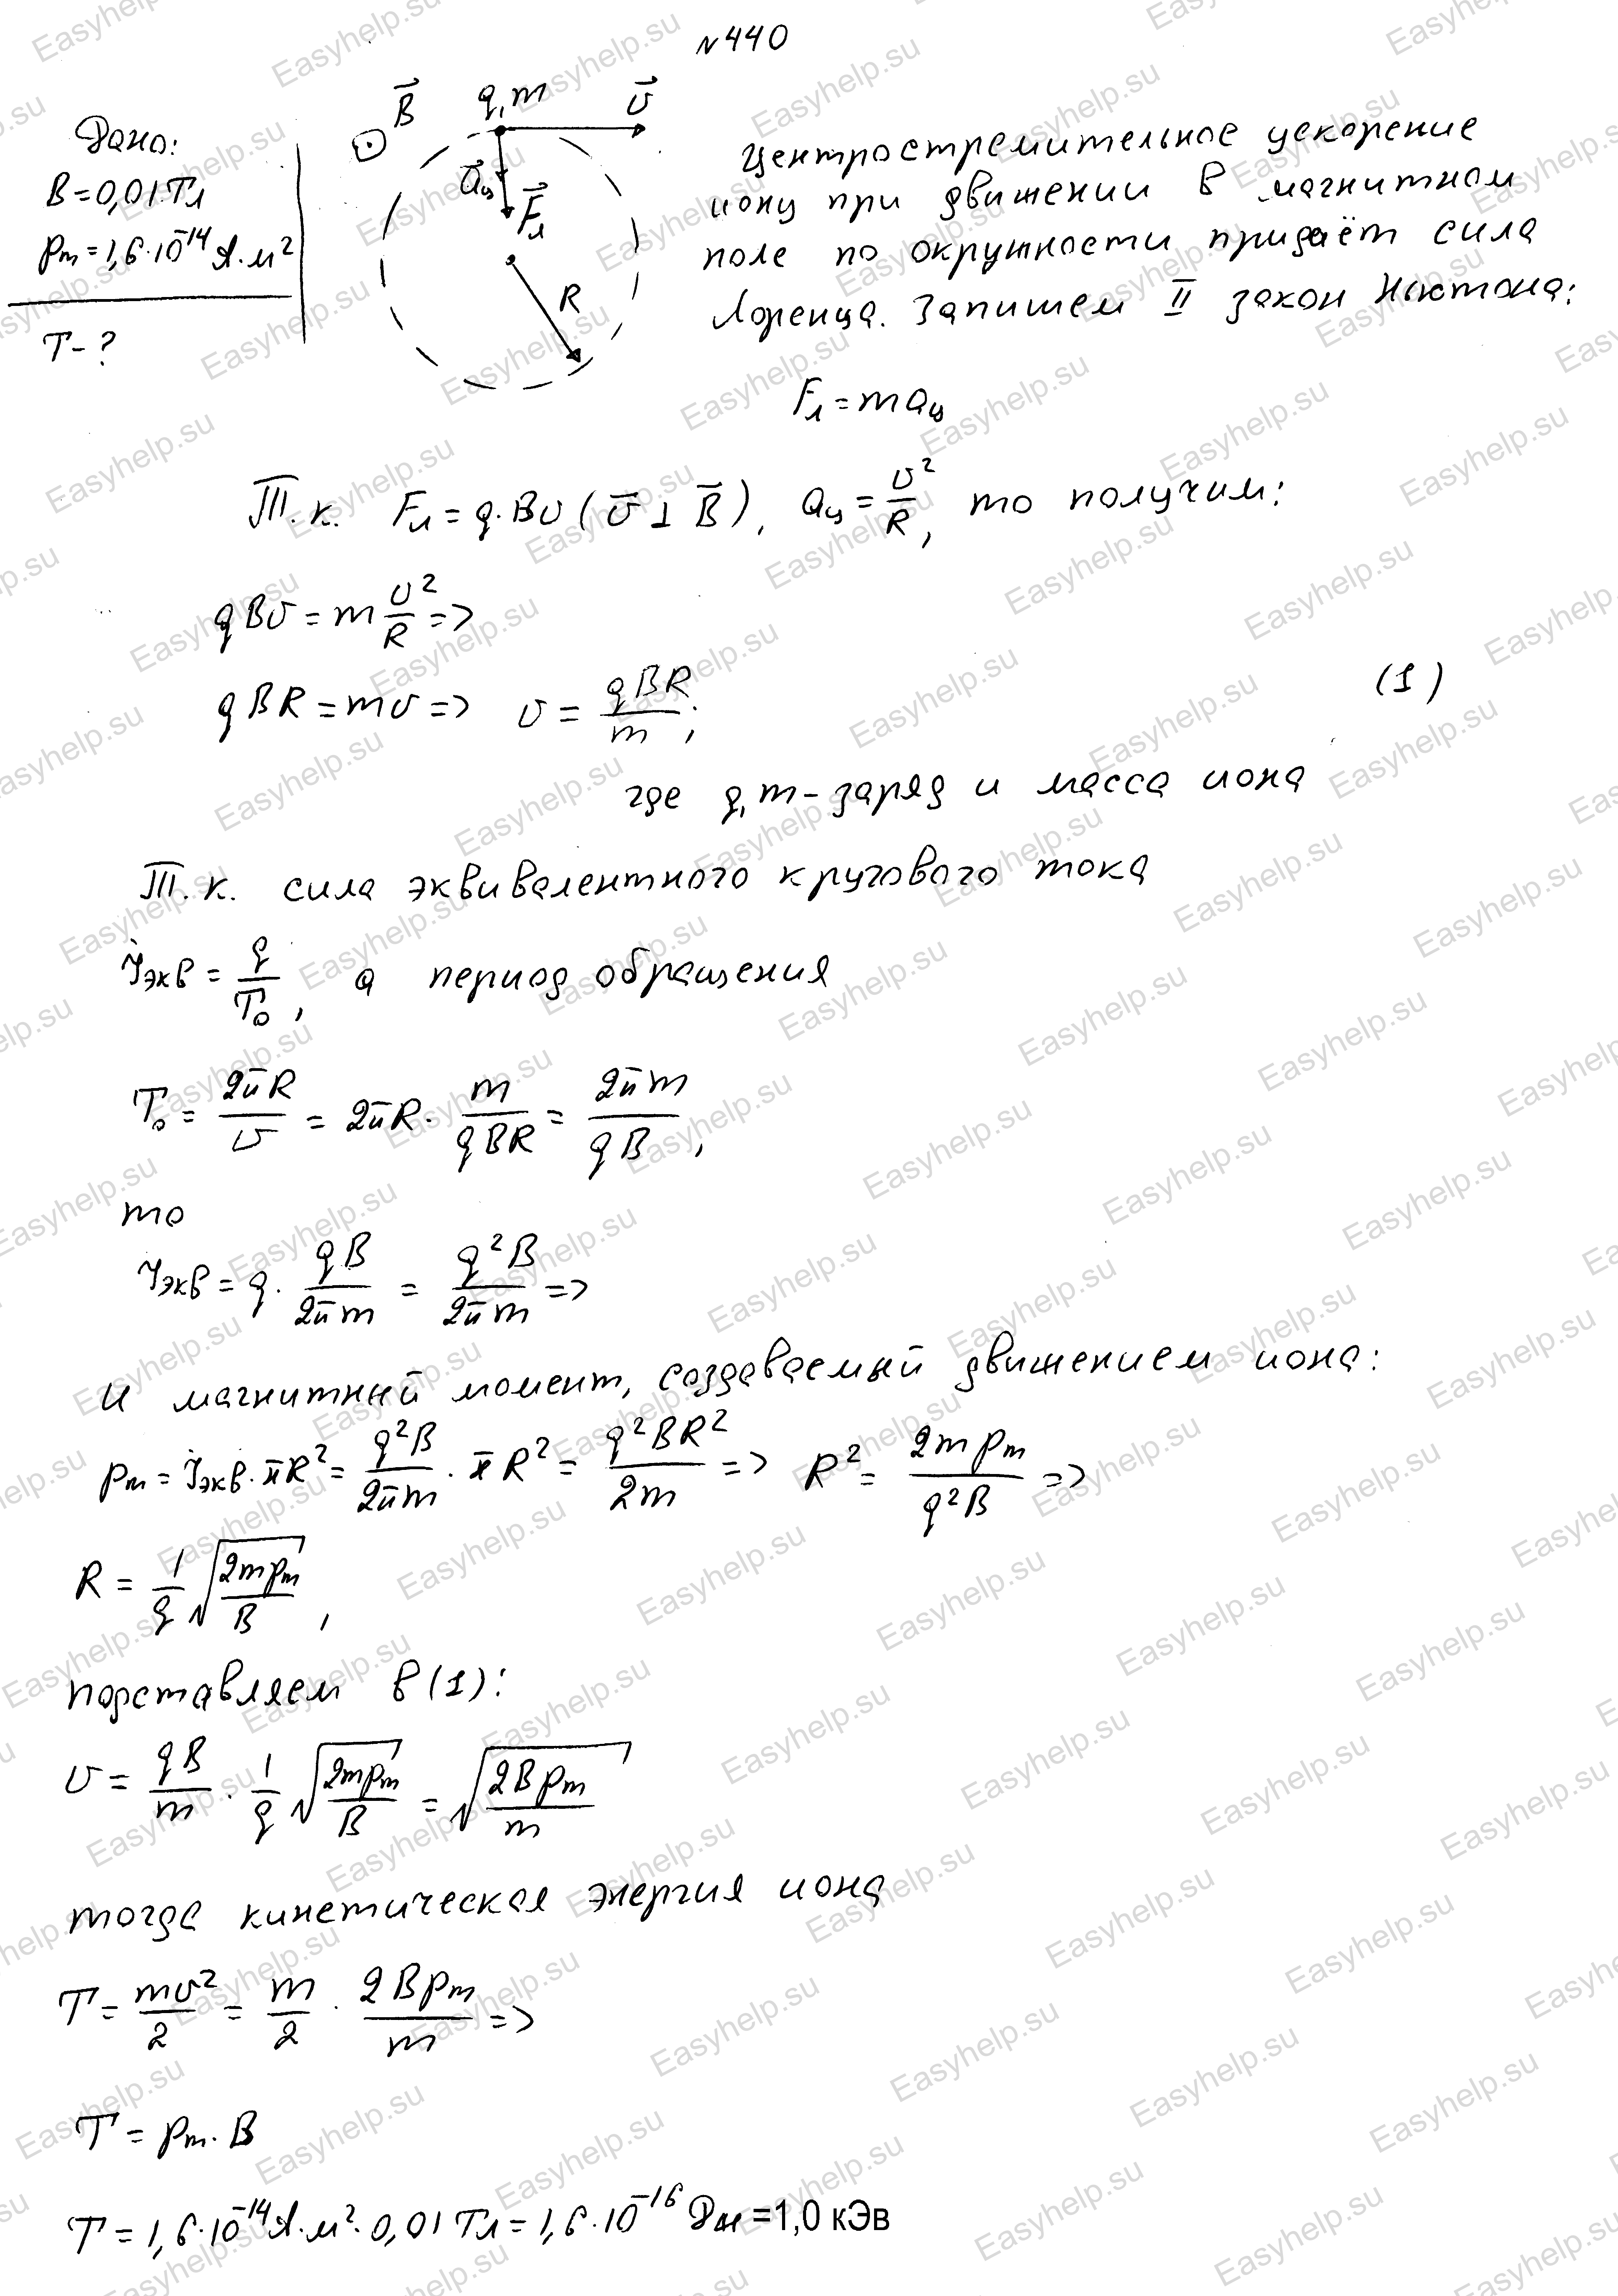 №440
Дано:
B=0,01 Тл
pm=1,6·10⁻¹⁴ А·м²
T-?
B⃗
q,m
υ⃗
a⃗ц
F⃗л
R
Центростремительное ускорение
иону при движении в магнитном
поле по окружности придаёт сила
Лоренца. Запишем II закон Ньютона:
Fл=maц
Т.к. Fл=q·Bυ(υ⃗⊥B⃗), aц=υ²/R, то получим:
qBυ=m υ²/R=>
qBR=mυ=> υ=qBR/m; (1)
где q,m-заряд и масса иона
Т.к. сила эквивалентного кругового тока
Iэкв=q/T₀, а период обращения
T₀=2πR/υ=2πR·m/qBR=2πm/qB,
то
Iэкв=q·qB/2πm=q²B/2πm=>
и магнитный момент, создаваемый движением иона:
pm=Iэкв·πR²=q²B/2πm·πR²=q²BR²/2m=> R²=2mpm/q²B=>
R=1/q√(2mpm/B),
подставляем в (1):
υ=qB/m·1/q√(2mpm/B)=√(2Bpm/m)
тогда кинетическая энергия иона
T=mυ²/2=m/2·2Bpm/m=>
T=pm·B
T=1,6·10⁻¹⁴А·м²·0,01 Тл=1,6·10⁻¹⁶ Дж =1,0 кЭв
Easyhelp.su